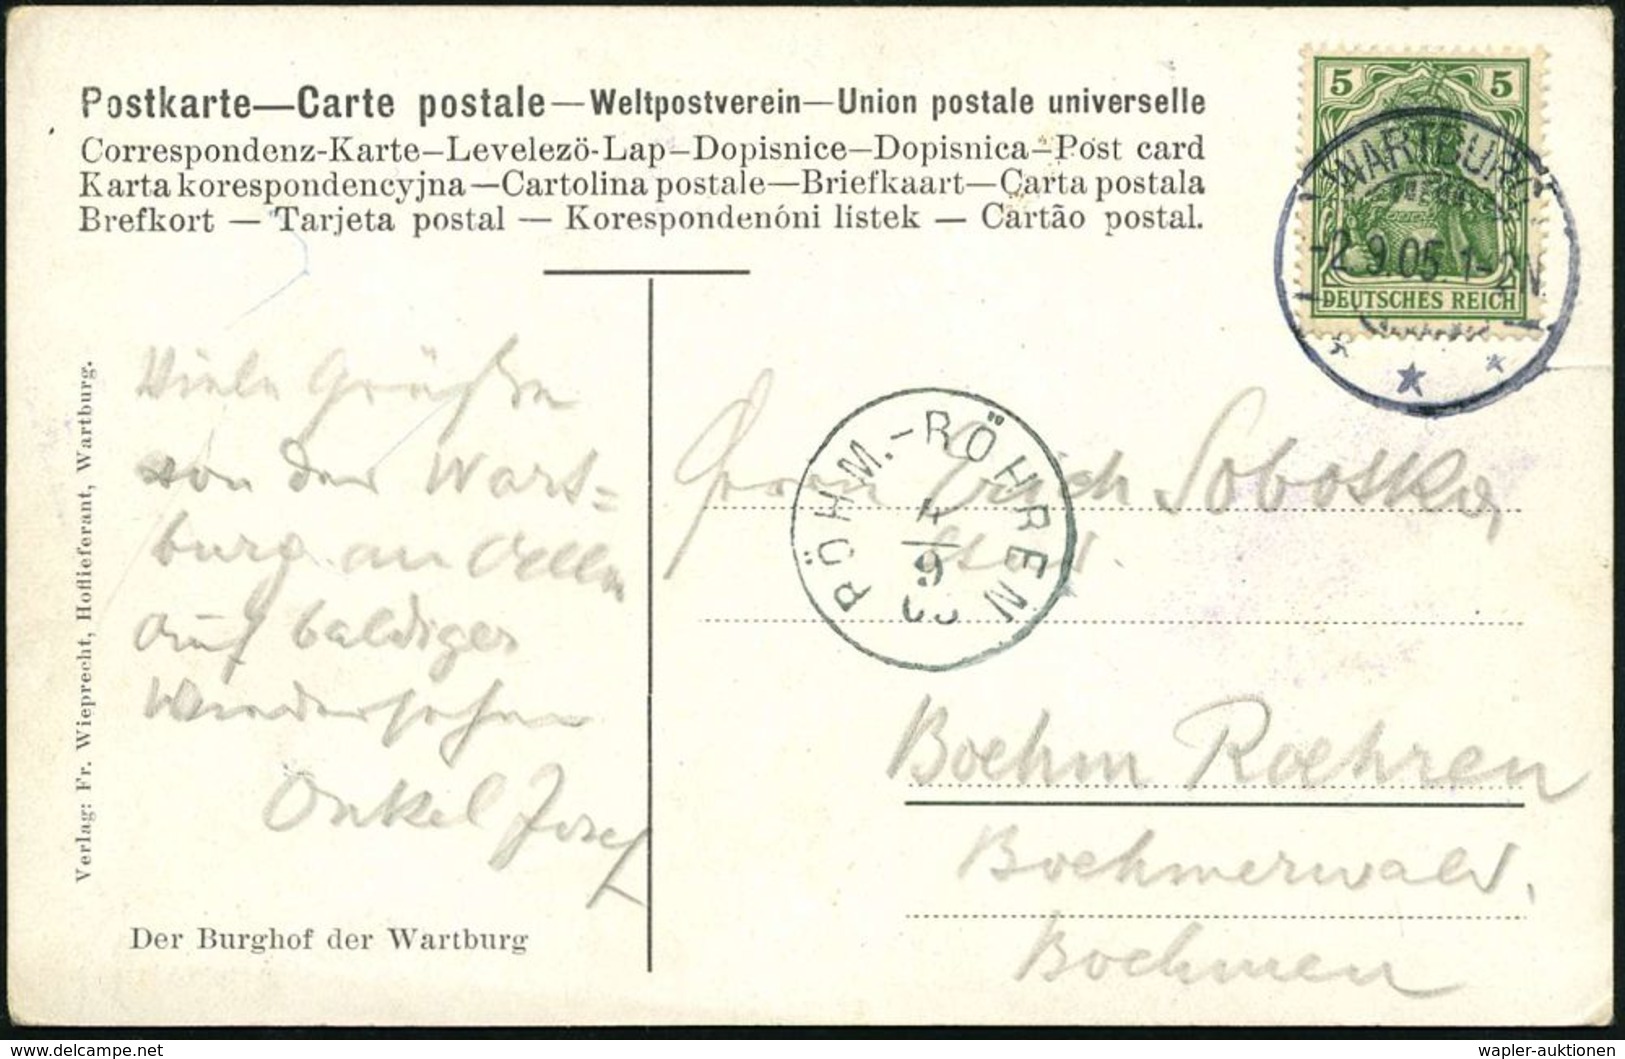 Postkarte—Carte postale—Weltpostverein—Union postale universelle
Correspondenz-Karte—Levelezö-Lap—Dopisnice—Dopisnica—Post card
Karta korespondencyjna—Cartolina postale—Briefkaart—Carta postala
Brefkort — Tarjeta postal — Korespondenóni listek — Cartão postal.
5 5
DEUTSCHES REICH
WARTBURG
-2.9.05.1-2N.
Viele Grüße
von der Wart=
burg an Alle
auf baldiges
Wiedersehen
Onkel Josef
BÖHM.-RÖHREN
4
9
Herrn Erich Sobotka
Boehm Roehren
Boehmerwald.
Boehmen
Der Burghof der Wartburg
Verlag: Fr. Wieprecht, Hoflieferant, Wartburg.
© www.delcampe.net
wapler-auktionen